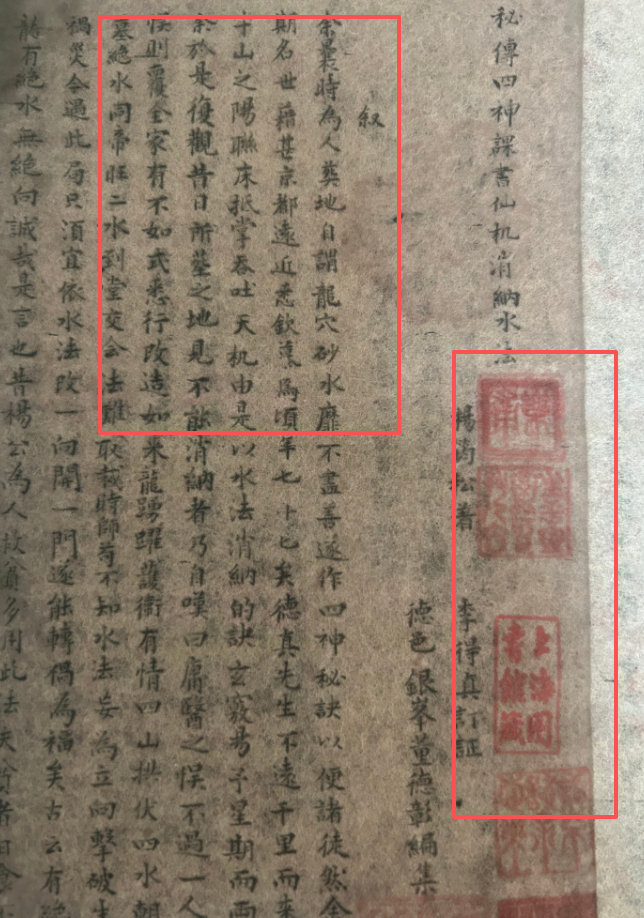 秘傳四神課書仙机消納水法
楊筠松著
李得真訂証
德邑銀峯董德彰編集
叙
余曩時為人葬地自謂龍穴砂水靡不盡善遂作四神秘訣以便諸徒然余
期名世藉甚京都遠近悉欽慕焉頃年七十七矣德真先生不遠千里而来
于山之陽聯床抵掌吞吐天机由是以水法消納的訣玄竅易予星期而
余於是復觀昔日所塋之地見不能消納者乃自嘆曰庸醫之悮不過一人
悮則覆全家有不如式悉行改造如来龍踴躍護衛有情四山拱伏四水朝
墓絶水同帝旺二水到堂交会法難取裁時師苟不知水法妄為立向擊破生
禍災今過此局只須宜依水法改一向開一門遂能轉禍為福矣古云有
龍有絶水無絶向誠哉是言也昔楊公為人救貧多用此法
上海圖書館藏